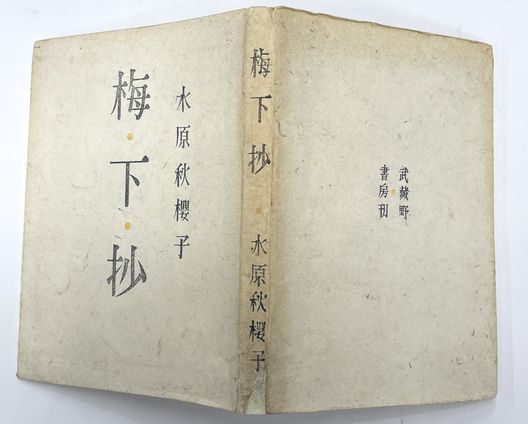 梅・下・抄
水原秋櫻子
梅下抄・水原秋櫻子
武藏野
書房刊